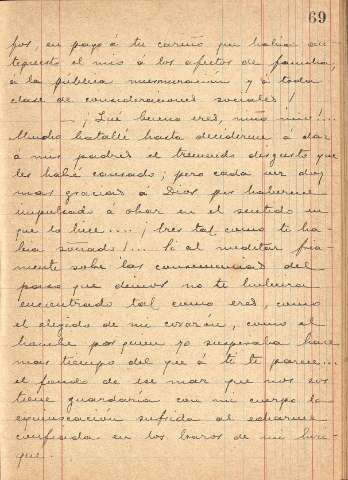 69
fos, en pago á tu cariño que habia an
tepuesto el mio á los afectos de familia,
á la publica murmuración y á toda
clase de consideraciones sociales!
— ¡Qué bueno eres, niño mio!...
Mucho batallé hasta decidirme á dar
á mis padres el tremendo disgusto que
les habré causado; pero cada vez doy
mas gracias á Dios por haberme
impulsado á obrar en el sentido en
que lo hice....; ¡eres tal como te ha-
bia soñado!... Si al meditar fria-
mente sobre las consecuencias del
paso que dimos no te hubiera
encontrado tal como eres, como
el elegido de mi corazón, como el
hombre por quien yo suspiraba hace
mas tiempo del que á ti te parece...
el fondo de ese mar que nos sos
tiene guardaria con mi cuerpo la
equivocación sufrida al echarme
confiada en los brazos de mi
que.